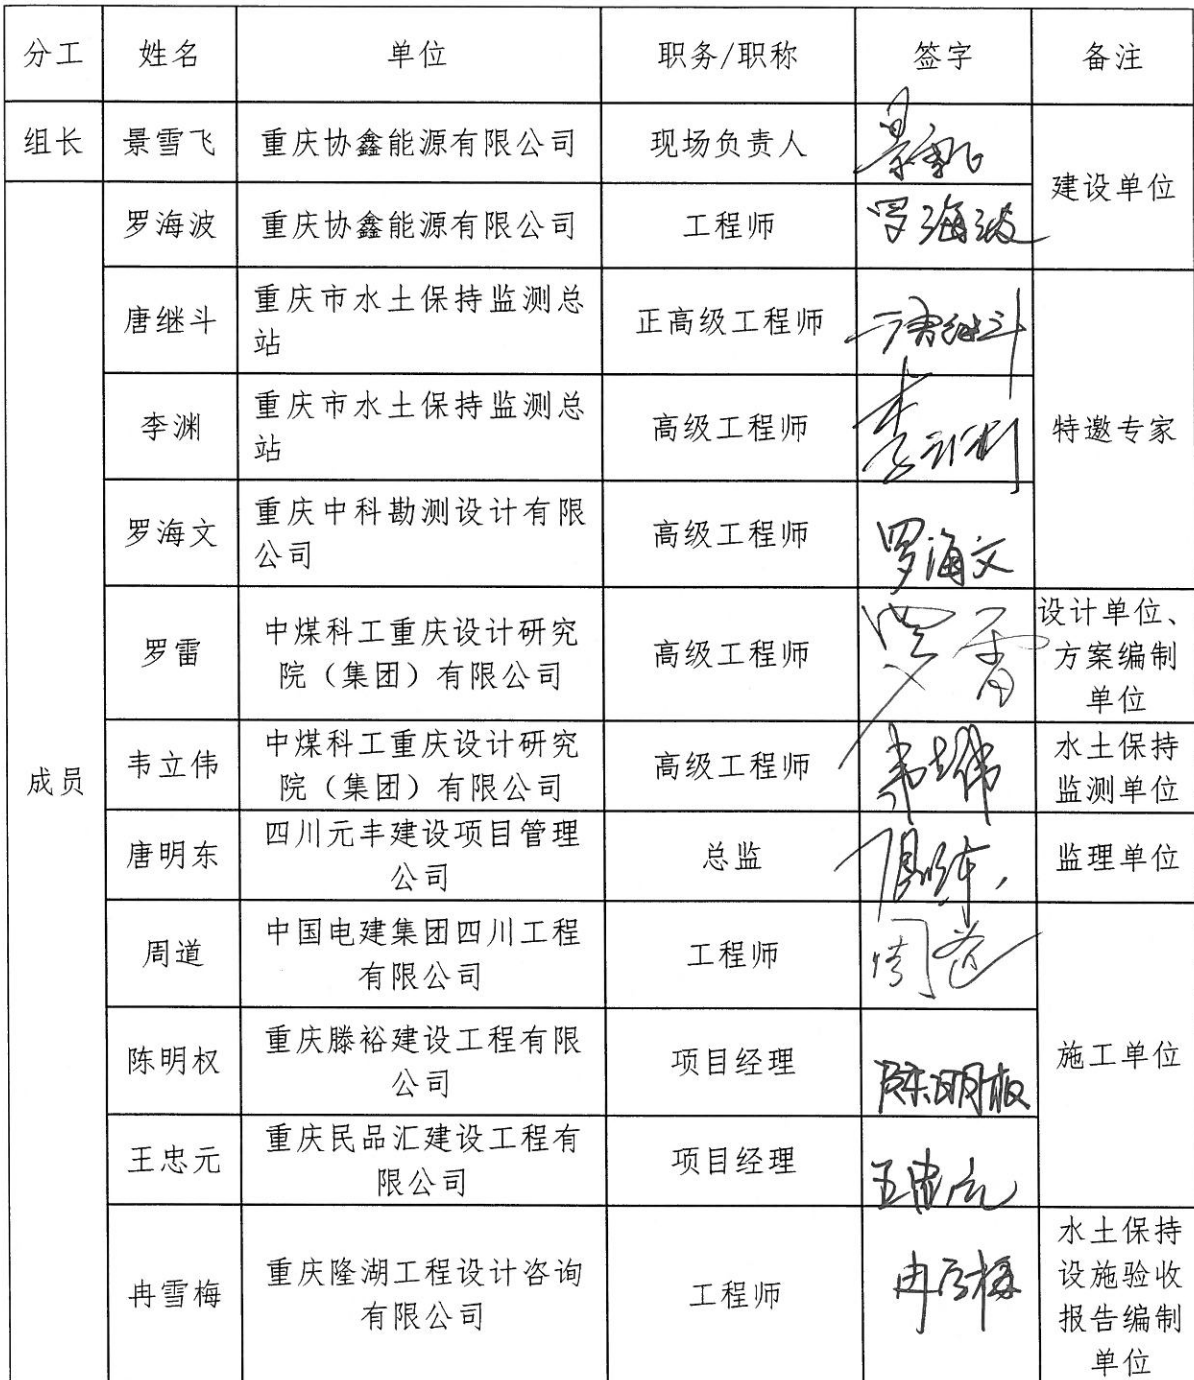 分工 姓名 单位 职务/职称 签字 备注
组长 景雪飞 重庆协鑫能源有限公司 现场负责人 景雪飞
建设单位
罗海波 重庆协鑫能源有限公司 工程师 罗海波
唐继斗 重庆市水土保持监测总
站 正高级工程师 唐继斗
李渊 重庆市水土保持监测总
站 高级工程师 李渊 特邀专家
罗海文 重庆中科勘测设计有限
公司 高级工程师 罗海文
罗雷 中煤科工重庆设计研究
院（集团）有限公司 高级工程师 罗雷
设计单位、
方案编制
单位
成员
韦立伟 中煤科工重庆设计研究
院（集团）有限公司 高级工程师 韦立伟
水土保持
监测单位
唐明东 四川元丰建设项目管理
公司 总监 唐明东 监理单位
周道 中国电建集团四川工程
有限公司 工程师 周道
陈明权 重庆滕裕建设工程有限
公司 项目经理 陈明权 施工单位
王忠元 重庆民品汇建设工程有
限公司 项目经理 王忠元
冉雪梅 重庆隆湖工程设计咨询
有限公司 工程师 冉雪梅
水土保持
设施验收
报告编制
单位